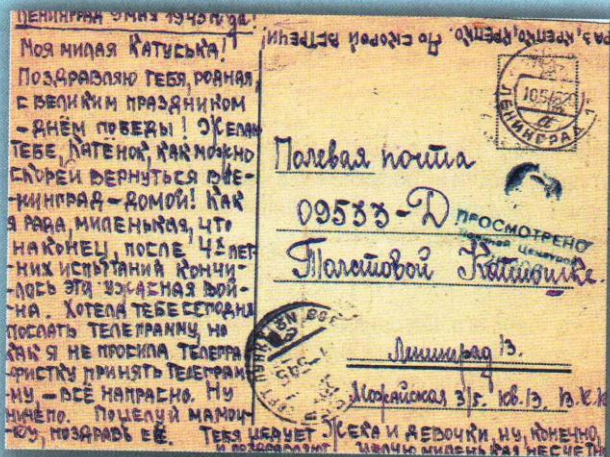 ЛЕНИНГРАД 9 МАЯ 1945 ГОДА!
МОЯ МИЛАЯ КАТУСЬКА!
ПОЗДРАВЛЯЮ ТЕБЯ, РОДНАЯ,
С ВЕЛИКИМ ПРАЗДНИКОМ
– ДНЁМ ПОБЕДЫ! ЖЕЛАЮ
ТЕБЕ, КАТЁНОК, КАК МОЖНО
СКОРЕЙ ВЕРНУТЬСЯ В ЛЕ-
-НИНГРАД – ДОМОЙ! КАК
Я РАДА, МИЛЕНЬКАЯ, ЧТО
НАКОНЕЦ, ПОСЛЕ 4Х ЛЕТ-
-НИХ ИСПЫТАНИЙ КОНЧИ-
-ЛОСЬ ЭТА УЖАСНАЯ ВОЙ-
-НА. ХОТЕЛА ТЕБЕ СЕГОДНЯ
ПОСЛАТЬ ТЕЛЕГРАММУ, НО
КАК Я НЕ ПРОСИЛА ТЕЛЕГРА-
-ФИСТКУ ПРИНЯТЬ ТЕЛЕГРАМ-
-МУ, – ВСЁ НАПРАСНО. НУ
НИЧЕГО. ПОЦЕЛУЙ МАМОЧ-
-КУ, ПОЗДРАВЬ ЕЁ. ТЕБЯ ЦЕЛУЕТ ЖЕКА И ДЕВОЧКИ, НУ, КОНЕЧНО,
И ПОЗДРАВЛЯЮТ! ЦЕЛУЮ МИЛЕНЬКАЯ НЕСЧЕТН
РАЗ, КРЕПКО, КРЕПКО. ДО СКОРОЙ ВСТРЕЧИ!
ЛЕНИНГРАД
Полевая почта
09533-Д
ПРОСМОТРЕНО
Военной Цензурой
Толстовой Катюшке.
Ленинград 13.
Можайская 3/5. кв. 13.